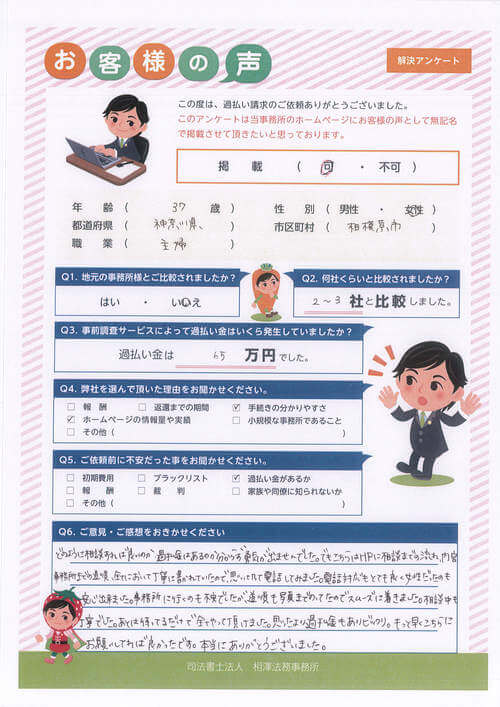 お客様の声
解決アンケート
この度は、過払い請求のご依頼ありがとうございました。
このアンケートは当事務所のホームページにお客様の声として無記名
で掲載させて頂きたいと思っております。
掲 載 ( 可 ・ 不可 )
年 齢 ( 37 歳 ) 性 別 ( 男性 ・ 女性 )
都道府県 ( 神奈川県 ) 市区町村 ( 相模原市 )
職 業 ( 主婦 )
Q1. 地元の事務所様とご比較されましたか?
はい ・ いいえ
Q2. 何社くらいと比較されましたか?
2〜3 社と比較しました。
Q3. 事前調査サービスによって過払い金はいくら発生していましたか?
過払い金は 65 万円でした。
Q4. 弊社を選んで頂いた理由をお聞かせください。
□ 報 酬 □ 返還までの期間 ☑ 手続きの分かりやすさ
☑ ホームページの情報量や実績 □ 小規模な事務所であること
□ その他 ( )
Q5. ご依頼前に不安だった事をお聞かせください。
□ 初期費用 □ ブラックリスト ☑ 過払い金があるか
□ 報 酬 □ 裁 判 □ 家族や同僚に知られないか
□ その他 ( )
Q6. ご意見・ご感想をおきかせください
どのように相談すれば良いのか 過払い金はあるのか分からず 勇気が出ませんでした。でもこちらはHPに相談までの流れ、内容
事務所までの道順、全てにおいて丁寧に書かれていたので思いきって電話してみました。電話対応もとても良く女性だったのも
安心出来ました。事務所に行くのも不安でしたが道順も写真までのってたのでスムーズに着きました。相談中も
丁寧でした。あとは待ってるだけで全てやって頂けました。思ったより過払い金もありビックリ。もって早くこちらに
お願いしてれば良かったです。本当にありがとうございました。
司法書士法人 相澤法務事務所